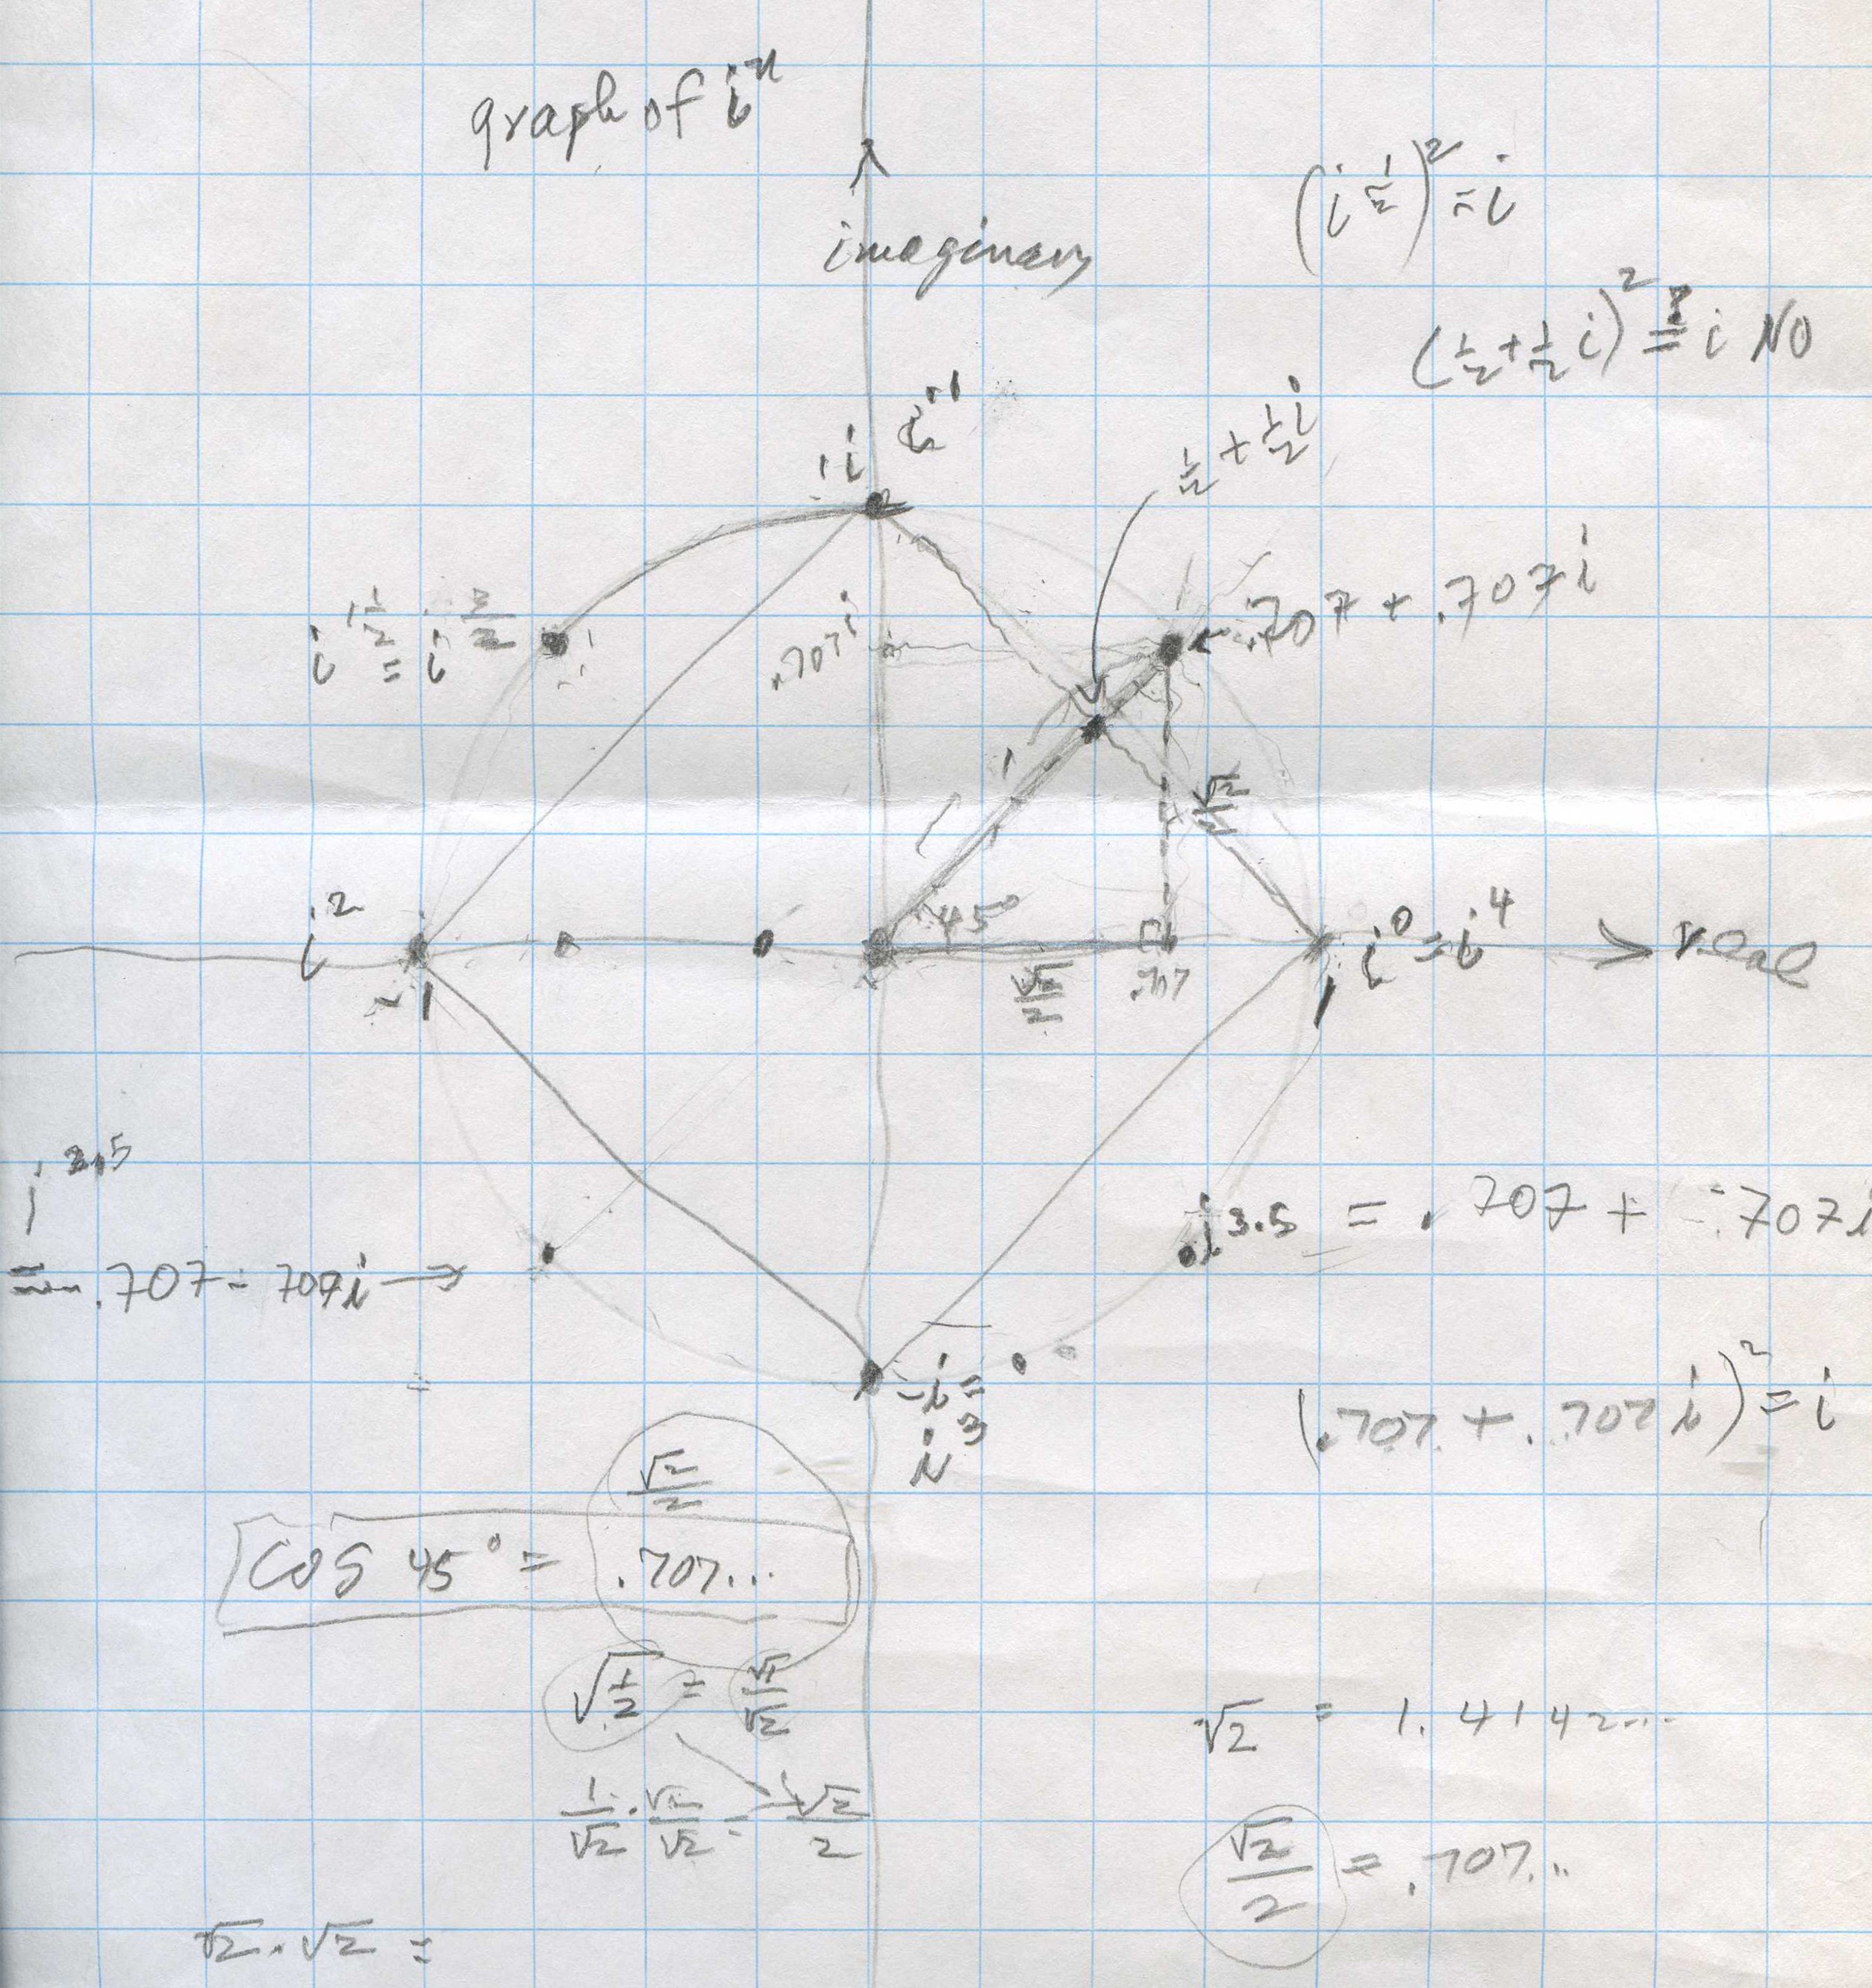 graph of iⁿ
imaginary
(i^½)² = i
(½ + ½ i)² ≟ i NO
i i¹
½ + ½ i
i^1½ = i^3/2
.707 i
.707 + .707 i
1
√2/2
i²
-1
45°
√2/2
.707
i⁰ = i⁴
1
real
i^2.5
= -.707 - .707i →
i^3.5 = .707 + -.707i
-i =
i³
(.707 + .707 i)² = i
√2/2
cos 45° = .707...
√½ = √1/√2
1/√2 · √2/√2 = √2/2
√2 = 1.4142...
√2/2 = .707...
√2 · √2 =